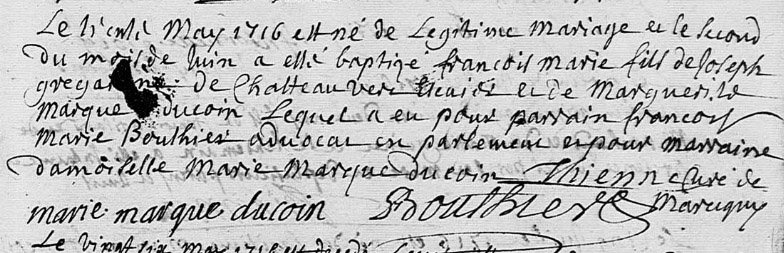 Le trente May 1716 est né de Legitime Mariage et le second
du mois de Juin a esté baptize francois marie fils de Joseph
de Chatteauvert et de Marguerite
Marque ducoin Lequel a eu pour parrain francois
Marie Bouthier advocat en parlement et pour marraine
damoiselle Marie Marque ducoin Thienn Curé de
marie marque ducoin Bouthier Marcigny
Le vingt six May 1716 est